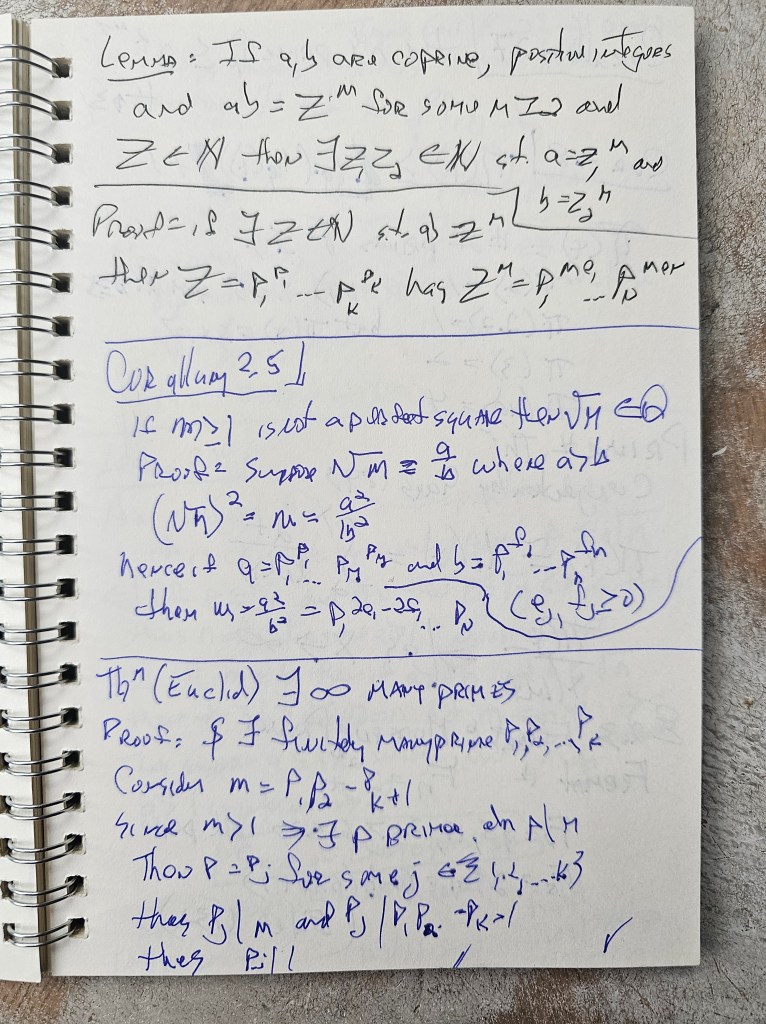 Lemma: If a,b are coprime, positive integers
and ab = Z^m for some m ≥ 2 and
Z ∈ N then ∃ Z₁Z₂ ∈ N st. a = Z₁^m and
b = Z₂^m
Proof = if ∃ Z ∈ N st. ab = Z^m
then Z = P₁^e₁ ... P_k^e_k has Z^m = P₁^me₁ ... P_n^me_n
Corollary 2.5
If m ≥ 1 is not a perfect square then √m ∈ Q
Proof = Suppose √m = a/b where a > b
(√m)² = m = a²/b²
hence if a = P₁^e₁ ... and b = P₁^f₁ ... P_n^f_n
then m = a²/b² = P₁^2e₁-2f₁ ... P_n (e_j, f_j ≥ 0)
Th^m (Euclid) ∃ ∞ MANY PRIMES
Proof: $ ∃ finitely many prime P₁,P₂,...,P_k
Consider m = P₁P₂ - P_k+1
Since m > 1 ⇒ ∃ p PRIME P | M
Then P = P_j for some j ∈ {1,2,...k}
thus P_j | m and P_j | P₁P₂ - P_k
thus P_j | 1